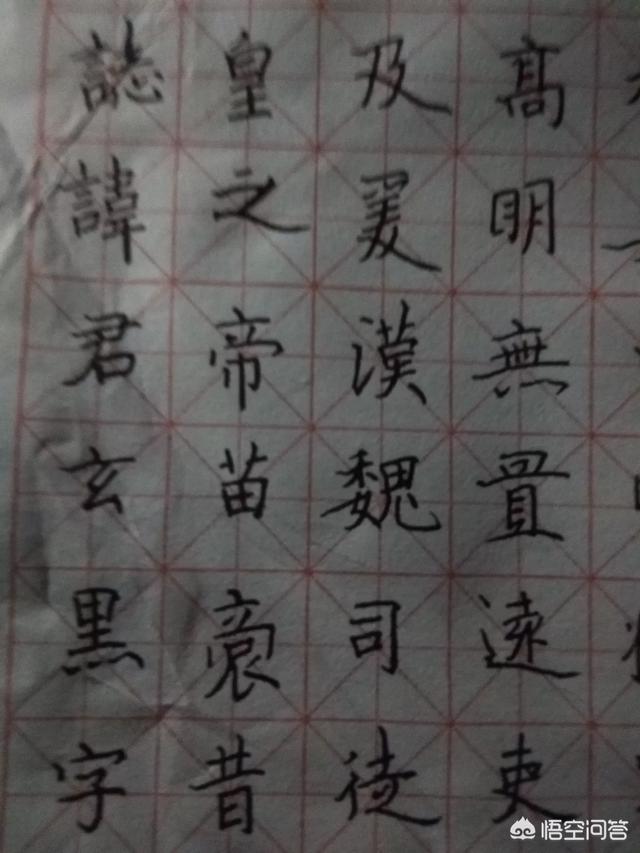 誌諱君玄黑字
皇之帝苗裔昔
及爰漢魏司徒
髙明無置遠吏
悟空问答